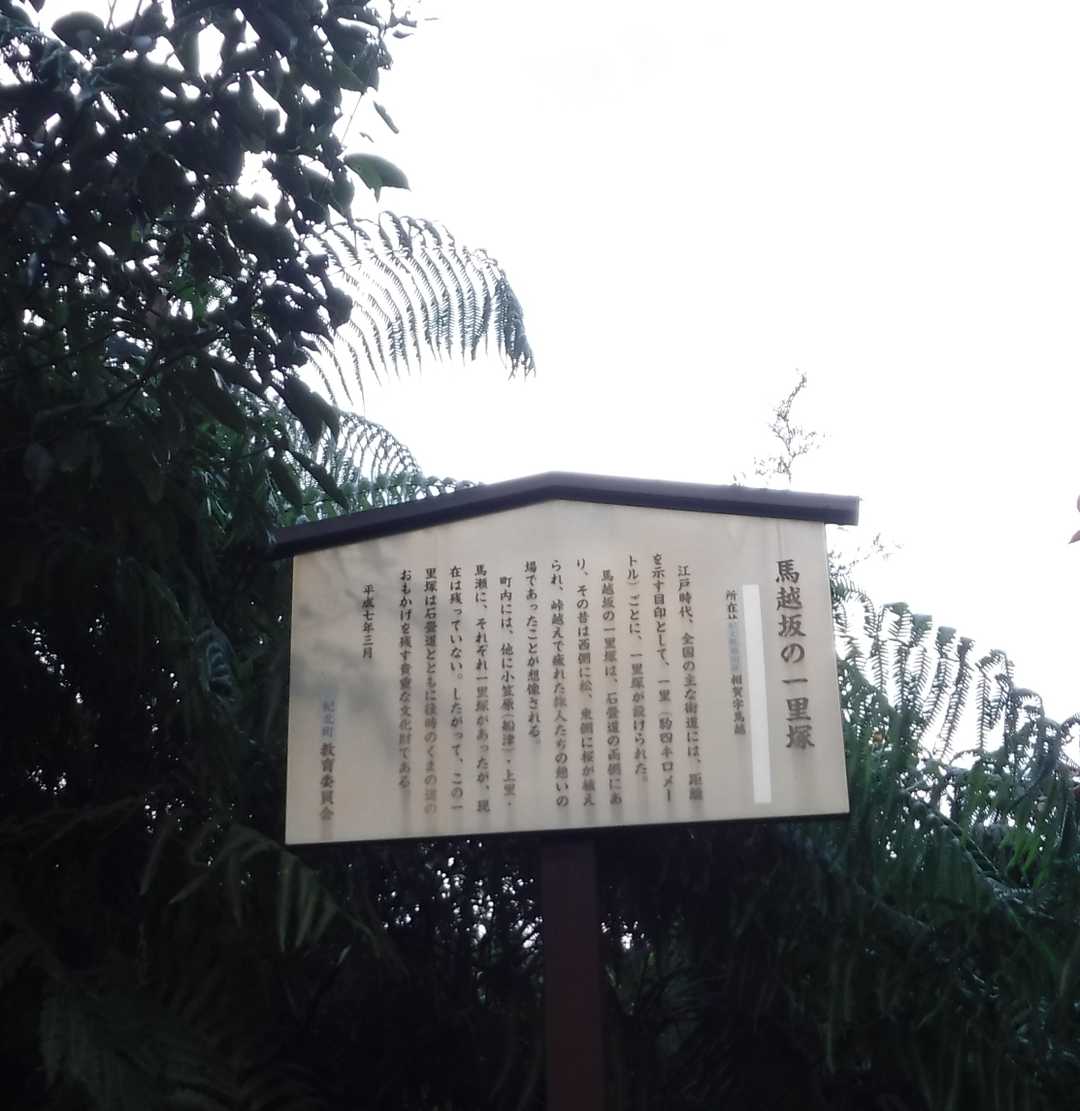 馬越坂の一里塚
所在地 紀北町 相賀字馬越
江戸時代、全国の主な街道には、距離
を示す目印として、一里（約四キロメー
トル）ごとに、一里塚が設けられた。
馬越坂の一里塚は、石畳道の両側にあ
り、その昔は西側に松、東側に桜が植え
られ、峠越えで疲れた旅人たちの憩いの
場であったことが想像される。
町内には、他に小笠原（船津）・上里・
馬瀬に、それぞれ一里塚があったが、現
在は残っていない。したがって、この一
里塚は石畳道とともに往時のくまの道の
おもかげを残す貴重な文化財である
平成七年三月
紀北町 教育委員会